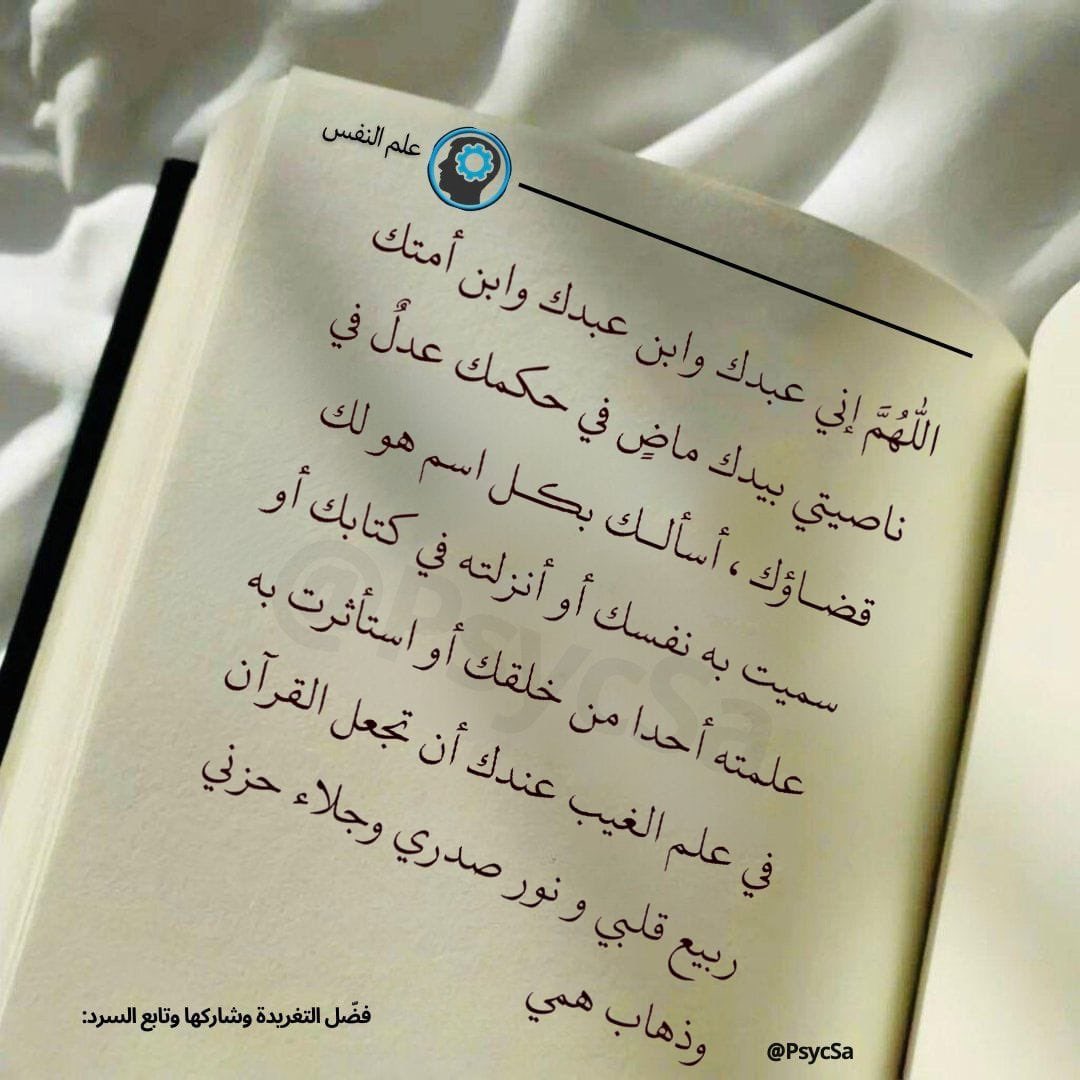 علم النفس
اللَّهُمَّ إني عبدك وابن عبدك وابن أمتك
ناصيتي بيدك ماضٍ في حكمك عدلٌ في
قضاؤك ، أسألك بكل اسم هو لك
سميت به نفسك أو أنزلته في كتابك أو
علمته أحدا من خلقك أو استأثرت به
في علم الغيب عندك أن تجعل القرآن
ربيع قلبي و نور صدري وجلاء حزني
وذهاب همي
@PsycSa
فضّل التغريدة وشاركها وتابع السرد:
@PsycSa